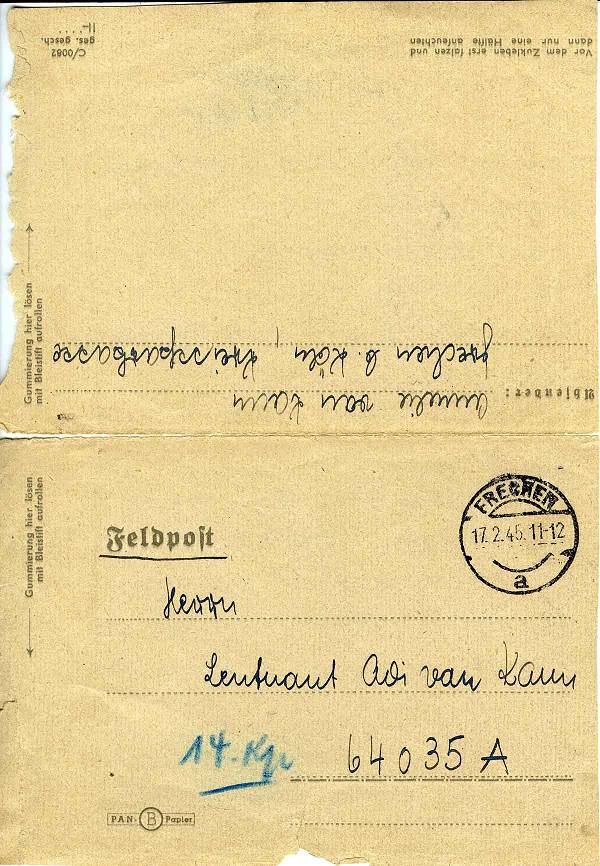 Vor dem Zukleben erst falzen und
dann nur eine Hälfte anfeuchten
C/0082
ges. gesch.
Gummierung hier lösen
mit Bleistift aufrollen
Absender:
Annelie van Kann
Frechen b. Köln, Kreissparkasse
Gummierung hier lösen
mit Bleistift aufrollen
Feldpost
FRECHEN
17.2.45.11-12
a
Herrn
Leutnant Adi van Kann
14. Kp.
64035 A
PAN- B Papier